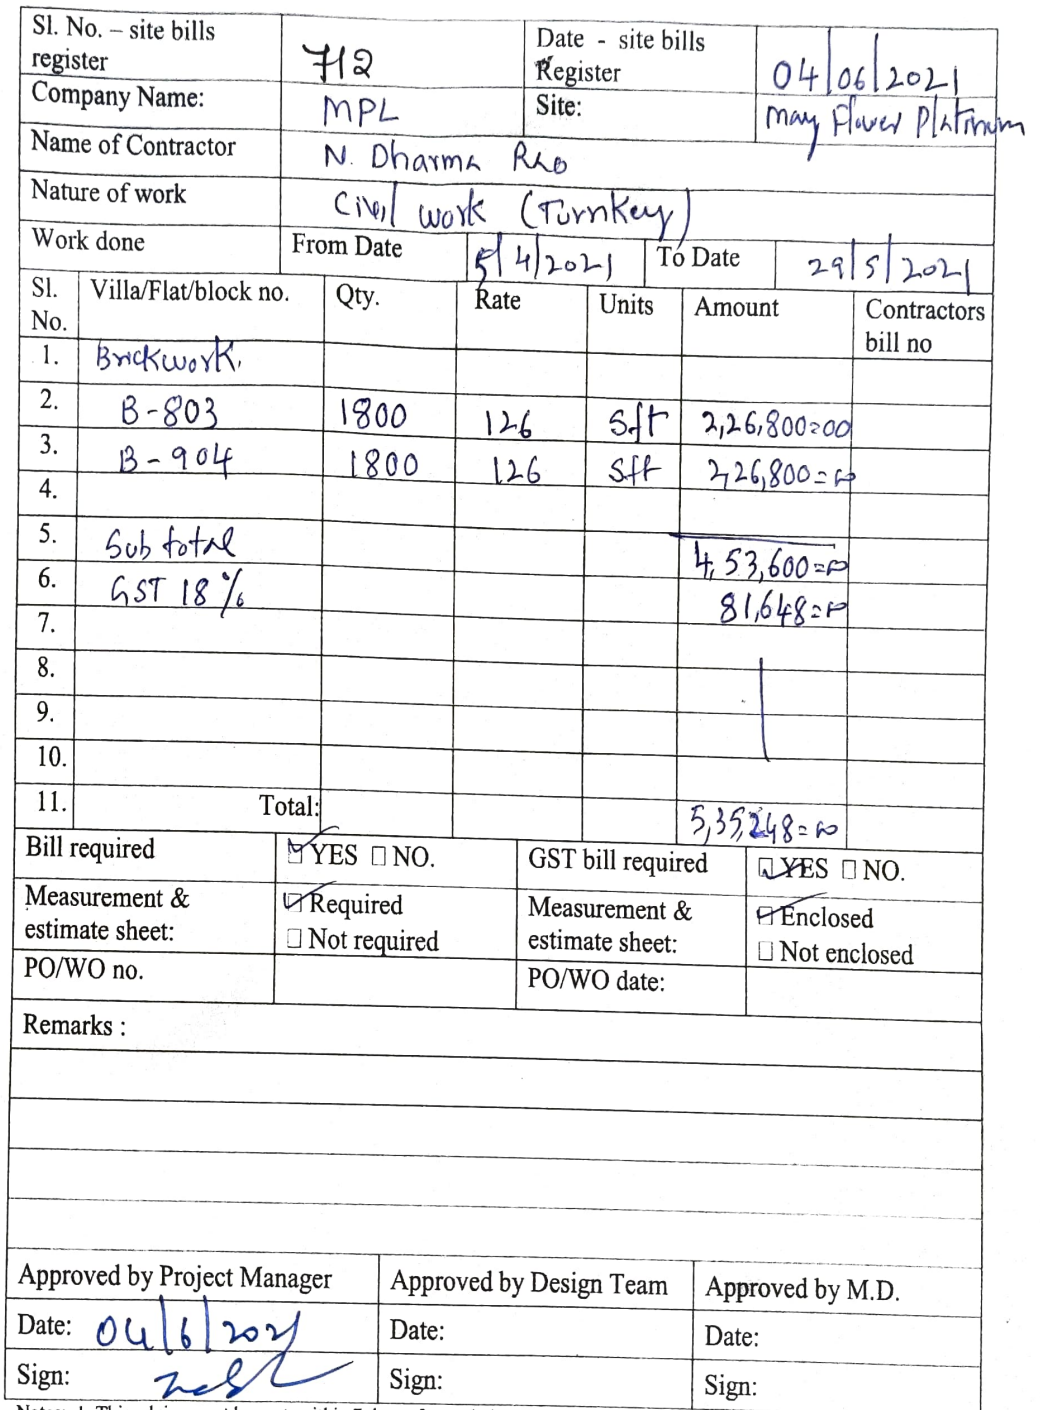 Sl. No. – site bills register 712 Date - site bills Register 04/06/2021
Company Name: MPL Site: May Flower Platinum
Name of Contractor N. Dharma Rao
Nature of work Civil work (Turnkey)
Work done From Date 5/4/2021 To Date 29/5/2021
Sl. No. Villa/Flat/block no. Qty. Rate Units Amount Contractors bill no
1. Brickwork.
2. B-803 1800 126 Sft 2,26,800=00
3. B-904 1800 126 Sft 2,26,800=00
4.
5. Sub total 4,53,600=00
6. GST 18% 81,648=00
7.
8.
9.
10.
11. Total: 5,35,248=00
Bill required YES NO. GST bill required YES NO.
Measurement & estimate sheet: Required Not required Measurement & estimate sheet: Enclosed Not enclosed
PO/WO no. PO/WO date:
Remarks :
Approved by Project Manager Approved by Design Team Approved by M.D.
Date: 04/6/2021 Date: Date:
Sign: Sign: Sign: